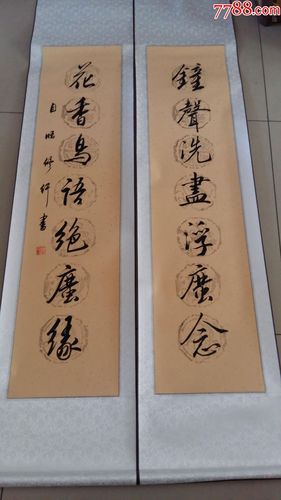 7788.com
鐘聲洗盡浮塵念
花香鳥語絕塵緣
書